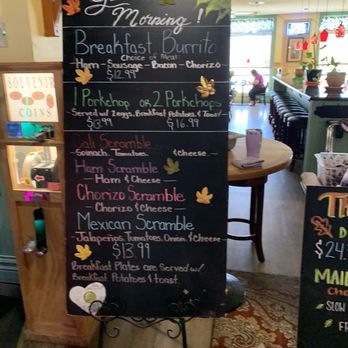 Good
Morning!
Breakfast Burrito
Choice of Meat:
- Ham - Sausage - Bacon - Chorizo
$12.99
1 Porkchop or 2 Porkchops
Served w/ 2 eggs, Breakfast Potatoes & Toast
$13.99 $16.99
Cali Scramble
Spinach, Tomatoes, & Cheese
Ham Scramble
Ham & Cheese
Chorizo Scramble
Chorizo & Cheese
Mexican Scramble
Jalapeños, Tomatoes, Onion, & Cheese
$13.99
Breakfast Plates are Served w/
Breakfast Potatoes & toast.
SOUVENIR
COINS
$24.
MAIN
SLOW